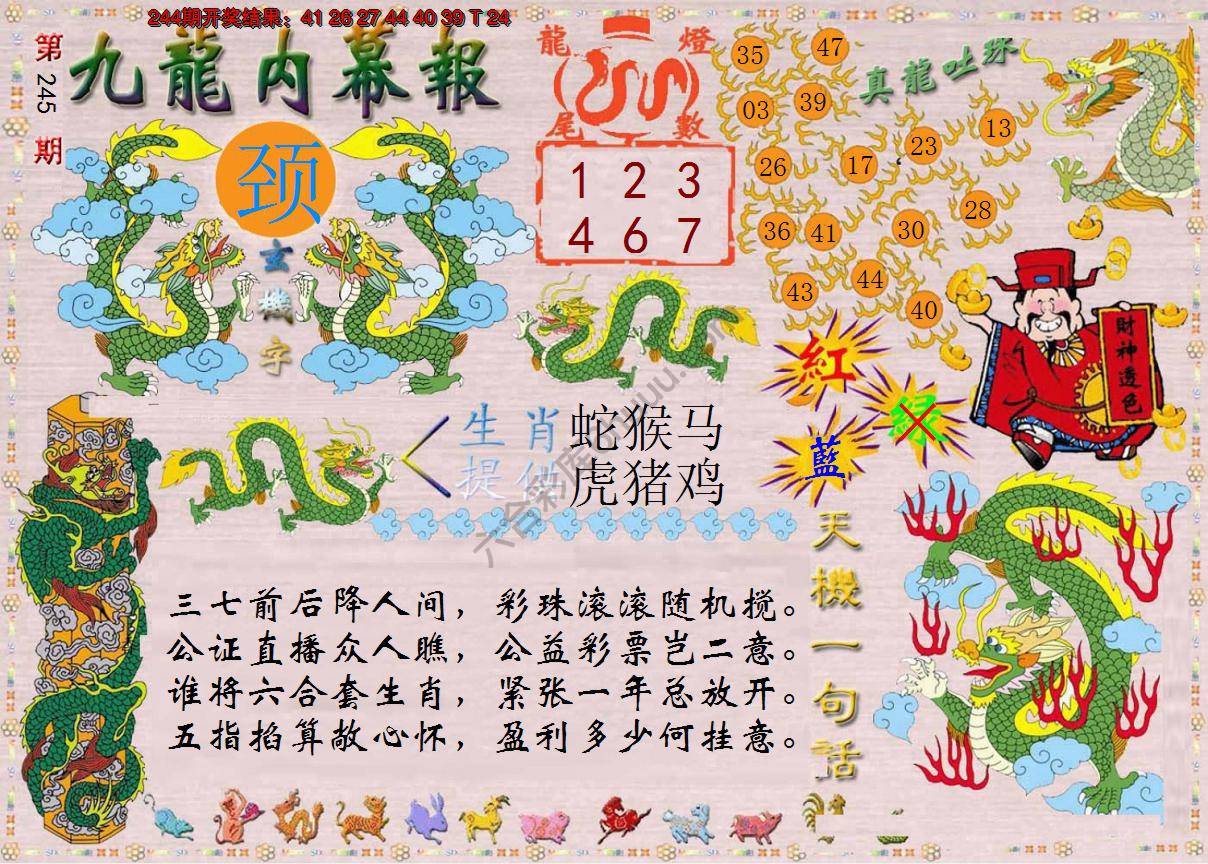 244期开奖结果：41 26 27 44 40 39 T 24
第
245
期
九龍内幕報
颈
玄
機
字
龍 燈
尾 數
1 2 3
4 6 7
真龍吐珠
35 47
03 39
26 17 23 13
36 41 30 28
43 44 40
紅
绿
藍
財神透色
生肖 蛇猴马
提供 虎猪鸡
天機一句话
三七前后降人间，彩珠滚滚随机搅。
公证直播众人瞧，公益彩票岂二意。
谁将六合套生肖，紧张一年总放开。
五指掐算敞心怀，盈利多少何挂意。